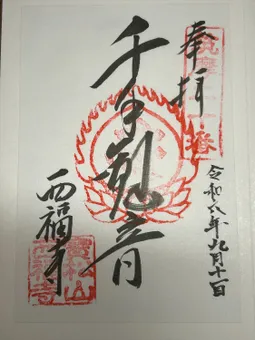 奉拝
千手観音
西福寺
令和六年九月十一日